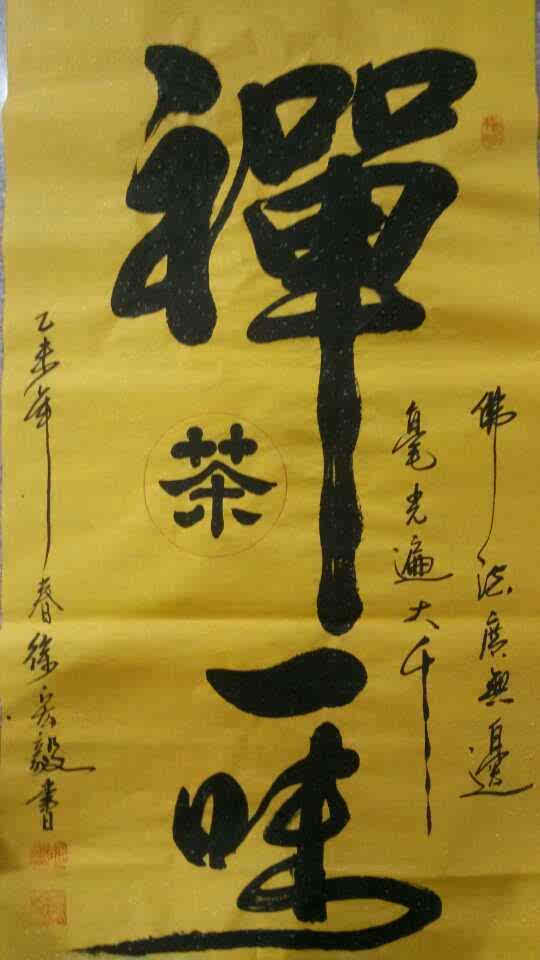 佛法廣無邊
毫光遍大千
禪
茶
一味
乙未年春徐宏毅書